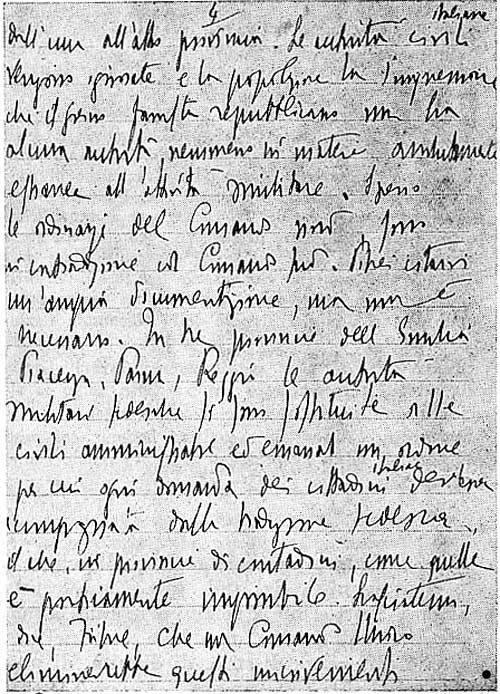 4
italiane
dall'una all'altra provincia. Le autorità civili
vengono ignorate e la popolazione ha l'impressione
che il governo fascista repubblicano non ha
alcuna autorità nemmeno in materie assolutamente
estranee all'attività militare. Spesso
le ordinanze del Comando nord sono
in contraddizione col Comando sud. Potrei citarvi
un'ampia documentazione, ma non è
necessario. In tre provincie dell'Emilia
Piacenza, Parma, Reggio le autorità
militari tedesche si sono sostituite alle
civili amministrative ed emanato un ordine
per cui ogni domanda dei cittadini italiani deve essere
accompagnata dalla traduzione tedesca,
il che, in provincie di contadini, come quelle
è praticamente impossibile.
che un Comando Unico
eliminerebbe questi inconvenienti